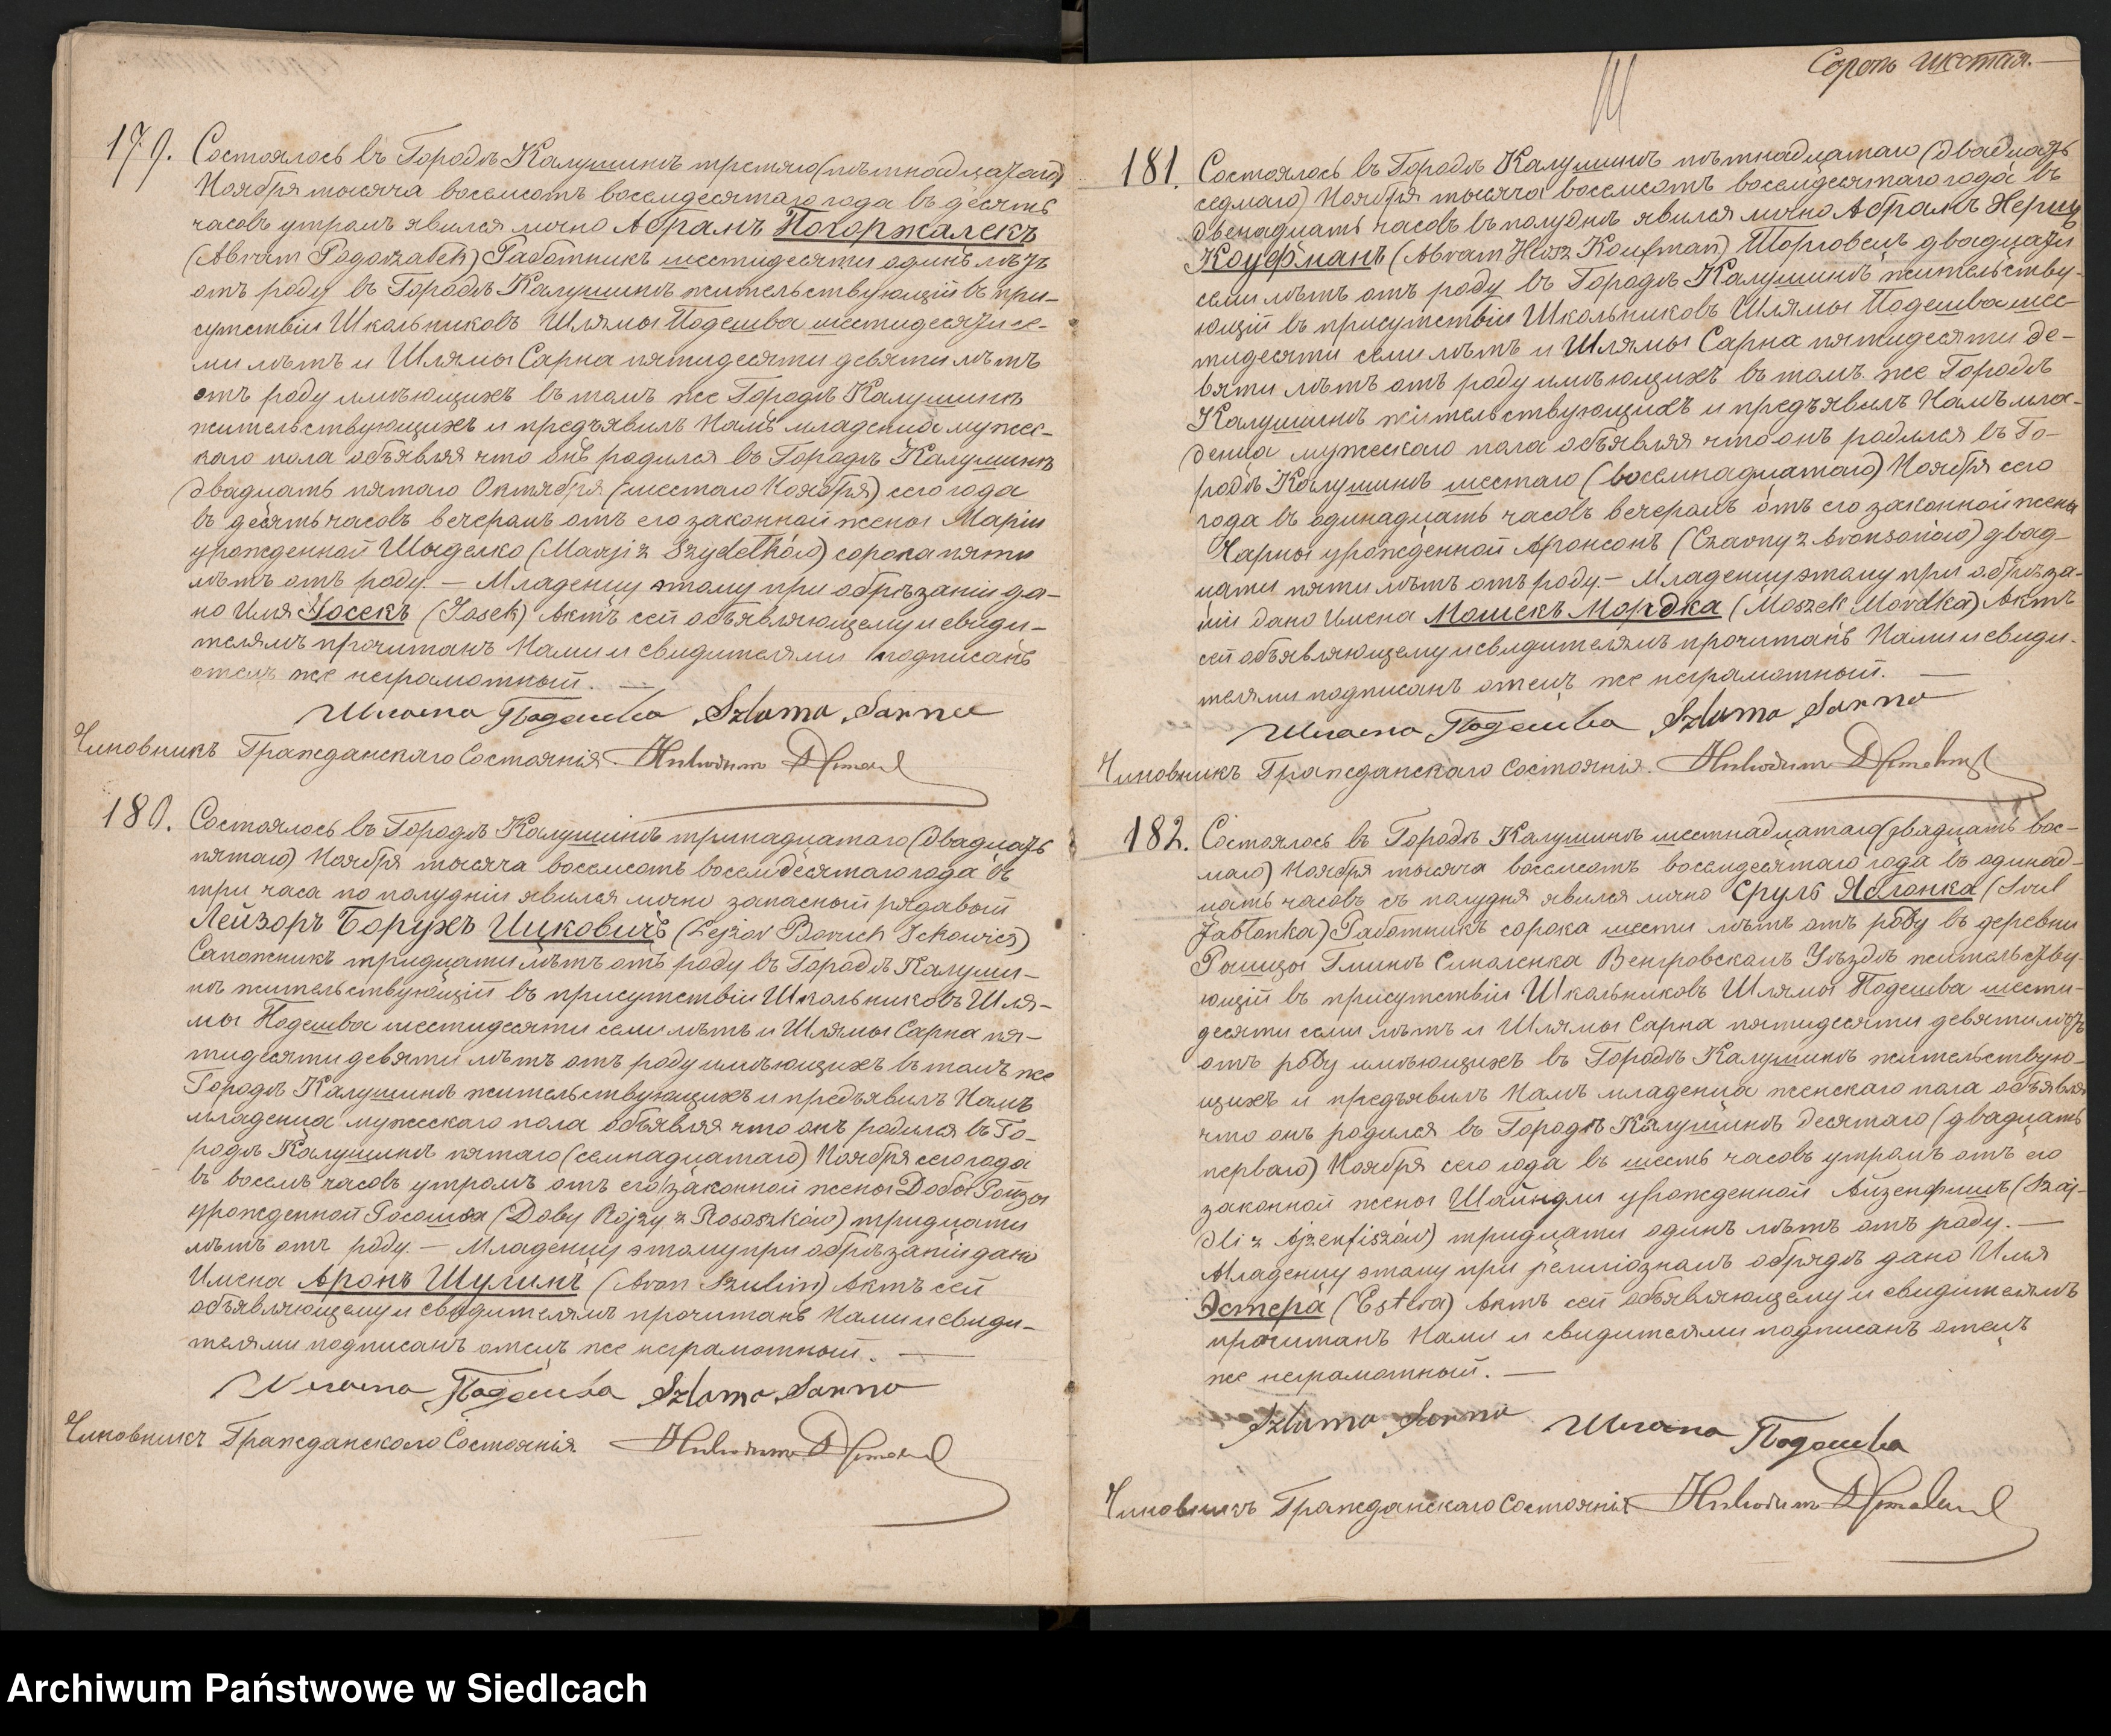 179. Состоялось въ Городѣ Калушинѣ третяго (пятнадцатаго)
Ноября тысяча восемсотъ восемдесятаго года въ десять
часовъ утромъ явился лично Абрамъ Погоржалекъ
(Abram Pogorzałek) Работникъ шестидесяти одинъ лѣтъ
отъ роду въ Городѣ Калушинѣ жительствующій въ при-
сутствіи Школьниковъ Шлямы Подешва шестидесяти се-
ми лѣтъ и Шлямы Сарна пятидесяти девяти лѣтъ
отъ роду имѣющихъ въ томъ же Городѣ Калушинѣ
жительствующихъ и предъявилъ Намъ младенца мужес-
каго пола объявляя что онъ родился въ Городѣ Калушинѣ
двадцать пятаго Октября (шестаго Ноября) сего года
въ десять часовъ вечеромъ отъ его законной жены Маріи
урожденной Шыделко (Maryi z Szydełków) сорока пяти
лѣтъ отъ роду. — Младенцу этому при обрѣзаніи да-
но Имя Іосекъ (Josek) Актъ сей объявляющему и свиди-
телямъ прочитанъ Нами и свидителями подписанъ
отецъ же неграмотный. —
Шлома Подешва Szlama Sarna
Чиновникъ Гражданскаго Состоянія
180. Состоялось въ Городѣ Калушинѣ тринадцатаго (двадцать
пятаго) Ноября тысяча восемсотъ восемдесятаго года въ
три часа по полудніи явился лично запасный рядовый
Лейзоръ Борухъ Ицковичъ (Lejzor Boruch Ickowicz)
Сапожникъ тридцати лѣтъ отъ роду въ Городѣ Калуши-
нѣ жительствующій въ присутствіи Школьниковъ Шля-
мы Подешва шестидесяти семи лѣтъ и Шлямы Сарна пя-
тидесяти девяти лѣтъ отъ роду имѣющихъ въ томъ же
Городѣ Калушинѣ жительствующихъ и предъявилъ Намъ
младенца мужескаго пола объявляя что онъ родился въ Го-
родѣ Калушинѣ пятаго (семнадцатаго) Ноября сего года
въ восемь часовъ утромъ отъ его законной жены Добы Ройзы
урожденной Рососшка (Doby Rojzy z Rososzków) тридцати
лѣтъ отъ роду. — Младенцу этому при обрѣзаніи дано
Имена Аронъ Шулимъ (Aron Szulim) Актъ сей
объявляющему и свидителямъ прочитанъ Нами и свиди-
телями подписанъ отецъ же неграмотный. —
Шлома Подешва Szlama Sarna
Чиновникъ Гражданскаго Состоянія
Сорокъ шестая. —
181. Состоялось въ Городѣ Калушинѣ пятнадцатаго (двадцать
седмаго) Ноября тысяча восемсотъ восемдесятаго года въ
двенадцать часовъ въ полуднѣ явился лично Абрамъ Херцъ
Кауфманъ (Abram Hersz Kaufman) Торговецъ двадцати
семи лѣтъ отъ роду въ Городѣ Калушинѣ жительству-
ющій въ присутствіи Школьниковъ Шлямы Подешва шес-
тидесяти семи лѣтъ и Шлямы Сарна пятидесяти де-
вяти лѣтъ отъ роду имѣющихъ въ томъ же Городѣ
Калушинѣ жительствующихъ и предъявилъ Намъ мла-
денца мужескаго пола объявляя что онъ родился въ Го-
родѣ Калушинѣ шестаго (восемнадцатаго) Ноября сего
года въ одинадцать часовъ вечеромъ отъ его законной жены
Чарны урожденной Аронсонъ (Czarny z Aronsonów) двад-
цати пяти лѣтъ отъ роду. — Младенцу этому при обрѣза-
ніи дано Имена Мошекъ Мордка (Moszek Mordka) Актъ
сей объявляющему и свидителямъ прочитанъ Нами и свиди-
телями подписанъ отецъ же неграмотный. —
Шлома Подешва Szlama Sarna
Чиновникъ Гражданскаго Состоянія.
182. Состоялось въ Городѣ Калушинѣ шестнадцатаго (двадцать вос-
маго) Ноября тысяча восемсотъ восемдесятаго года въ одинад-
цать часовъ съ полудня явился лично Сруль Яблонка (Srul
Jabłonka) Работникъ сорока шести лѣтъ отъ роду въ деревни
Глинѣ Венгровскомъ Уѣздѣ жительству-
ющій въ присутствіи Школьниковъ Шлямы Подешва шести-
десяти семи лѣтъ и Шлямы Сарна пятидесяти девяти лѣтъ
отъ роду имѣющихъ въ Городѣ Калушинѣ жительствую-
щихъ и предъявилъ Намъ младенца женскаго пола объявляя
что онъ родился въ Городѣ Калушинѣ десятаго (двадцать
перваго) Ноября сего года въ шесть часовъ утромъ отъ его
законной жены Шайндли урожденной Айзенфишъ (Szaj-
dli z Ajzenfiszów) тридцати одинъ лѣтъ отъ роду. —
Младенцу этому при религіозномъ обрядѣ дано Имя
Эстера (Estera) Актъ сей объявляющему и свидителямъ
прочитанъ Нами и свидителями подписанъ отецъ
же неграмотный. —
Szlama Sarna Шлома Подешва
Чиновникъ Гражданскаго Состоянія
Archiwum Państwowe w Siedlcach